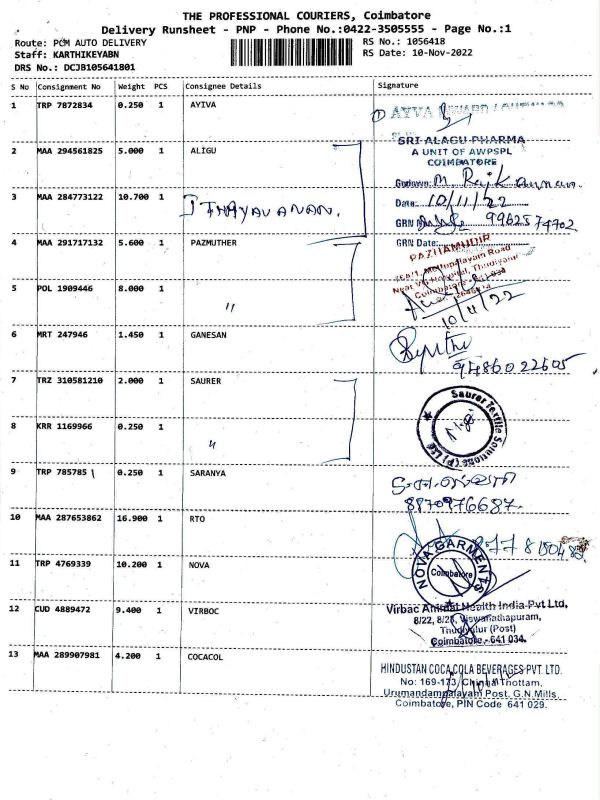 THE PROFESSIONAL COURIERS, Coimbatore
Delivery Runsheet - PNP - Phone No.:0422-3505555 - Page No.:1
Route: PCM AUTO DELIVERY RS No.: 1056418
Staff: KARTHIKEYABN RS Date: 10-Nov-2022
DRS No.: DCJB105641801
S No Consignment No Weight PCS Consignee Details Signature
1 TRP 7872834 0.250 1 AYIVA
SRI ALAGU PHARMA
A UNIT OF AWPSPL
COIMBATORE
2 MAA 294561825 5.000 1 ALIGU
Godown: M.
Date: 10/11/22
3 MAA 284773122 10.700 1
GRN 9962574702
4 MAA 291717132 5.600 1 PAZMUTHER GRN Date:
PAZHAMUDIR
Mettupalayam Road
Coimbatore
5 POL 1909446 8.000 1 "
10/11/22
6 MRT 247946 1.450 1 GANESAN
9486022605
7 TRZ 310581210 2.000 1 SAURER
Saurer Textile Solutions (P) Ltd
8 KRR 1169966 0.250 1 "
9 TRP 785785 0.250 1 SARANYA
8870976687
10 MAA 287653862 16.900 1 RTO
11 TRP 4769339 10.200 1 NOVA
NOVA GARMENTS
Coimbatore
12 CUD 4889472 9.400 1 VIRBOC
Virbac Animal Health India Pvt Ltd,
8/22, 8/23, Viswanathapuram,
Thudiyalur (Post)
Coimbatore - 641 034.
13 MAA 289907981 4.200 1 COCACOL
HINDUSTAN COCA COLA BEVERAGES PVT. LTD.
No: 169-173, Chinna Thottam,
Urumandampalayam Post, G.N.Mills
Coimbatore, PIN Code 641 029.